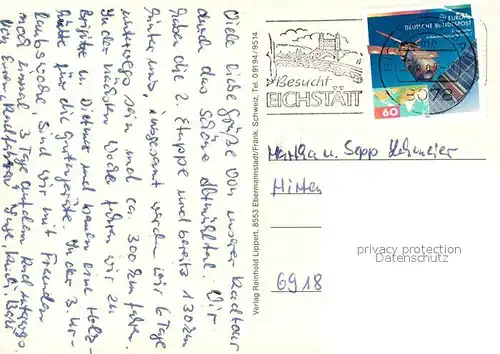 Viele liebe Grüße von unserer Radtour
durch das schöne Altmühltal. Wir
haben die 2. Etappe und bereits 130 km
hinter uns, insgesamt werden wir 6 Tage
unterwegs sein und ca. 300 km fahren.
In der nächsten Woche fahren wir zu
Brigitte u. Dietmar und bauen eine Holz-
hütte für die Gartengeräte. In der 3. Ur-
laubswoche, sind wir mit Freunden
noch einmal 3 Tage auf dem Rad unterwegs.
von Euren Radfahrern
Verlag Reinhold Lippert, 8553 Ebermannstadt/Fränk. Schweiz, Tel. 09194/9514
Besucht
EICHSTÄTT
EUROPA
DEUTSCHE BUNDESPOST
60
8078
u. Sepp
6918
privacy protection
Datenschutz